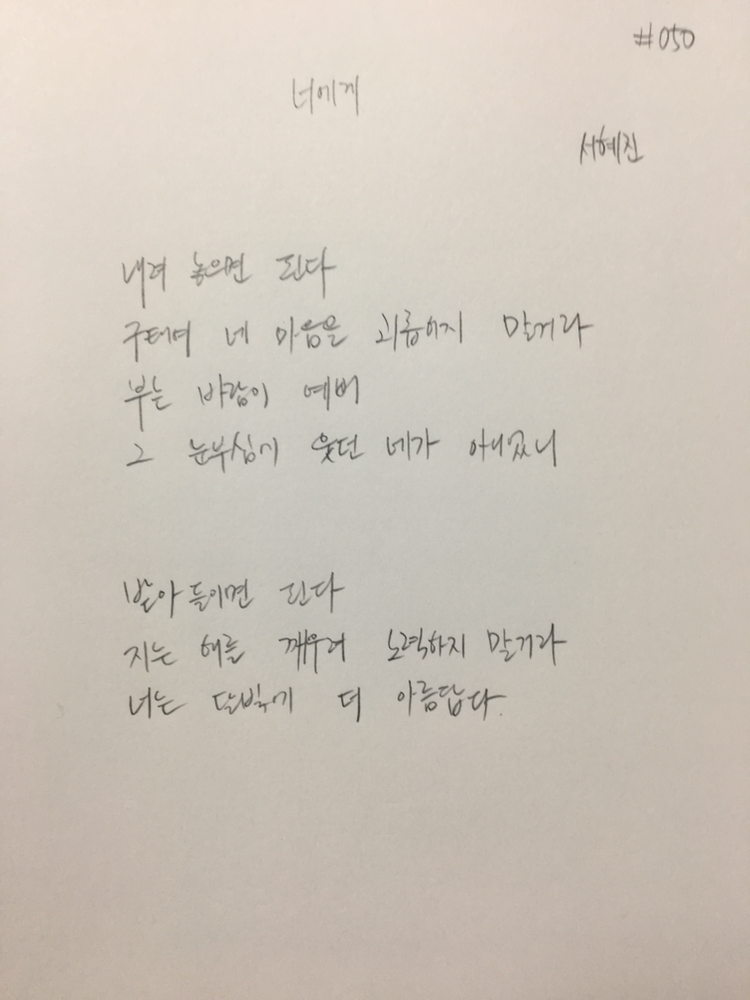 #050
너에게
서혜진
내려 놓으면 된다
구태여 네 마음을 괴롭히지 말거라
부는 바람이 예뻐
그 눈부심에 웃던 네가 아니었니
받아들이면 된다
지는 해를 깨우려 노력하지 말거라
너는 달빛에 더 아름답다.